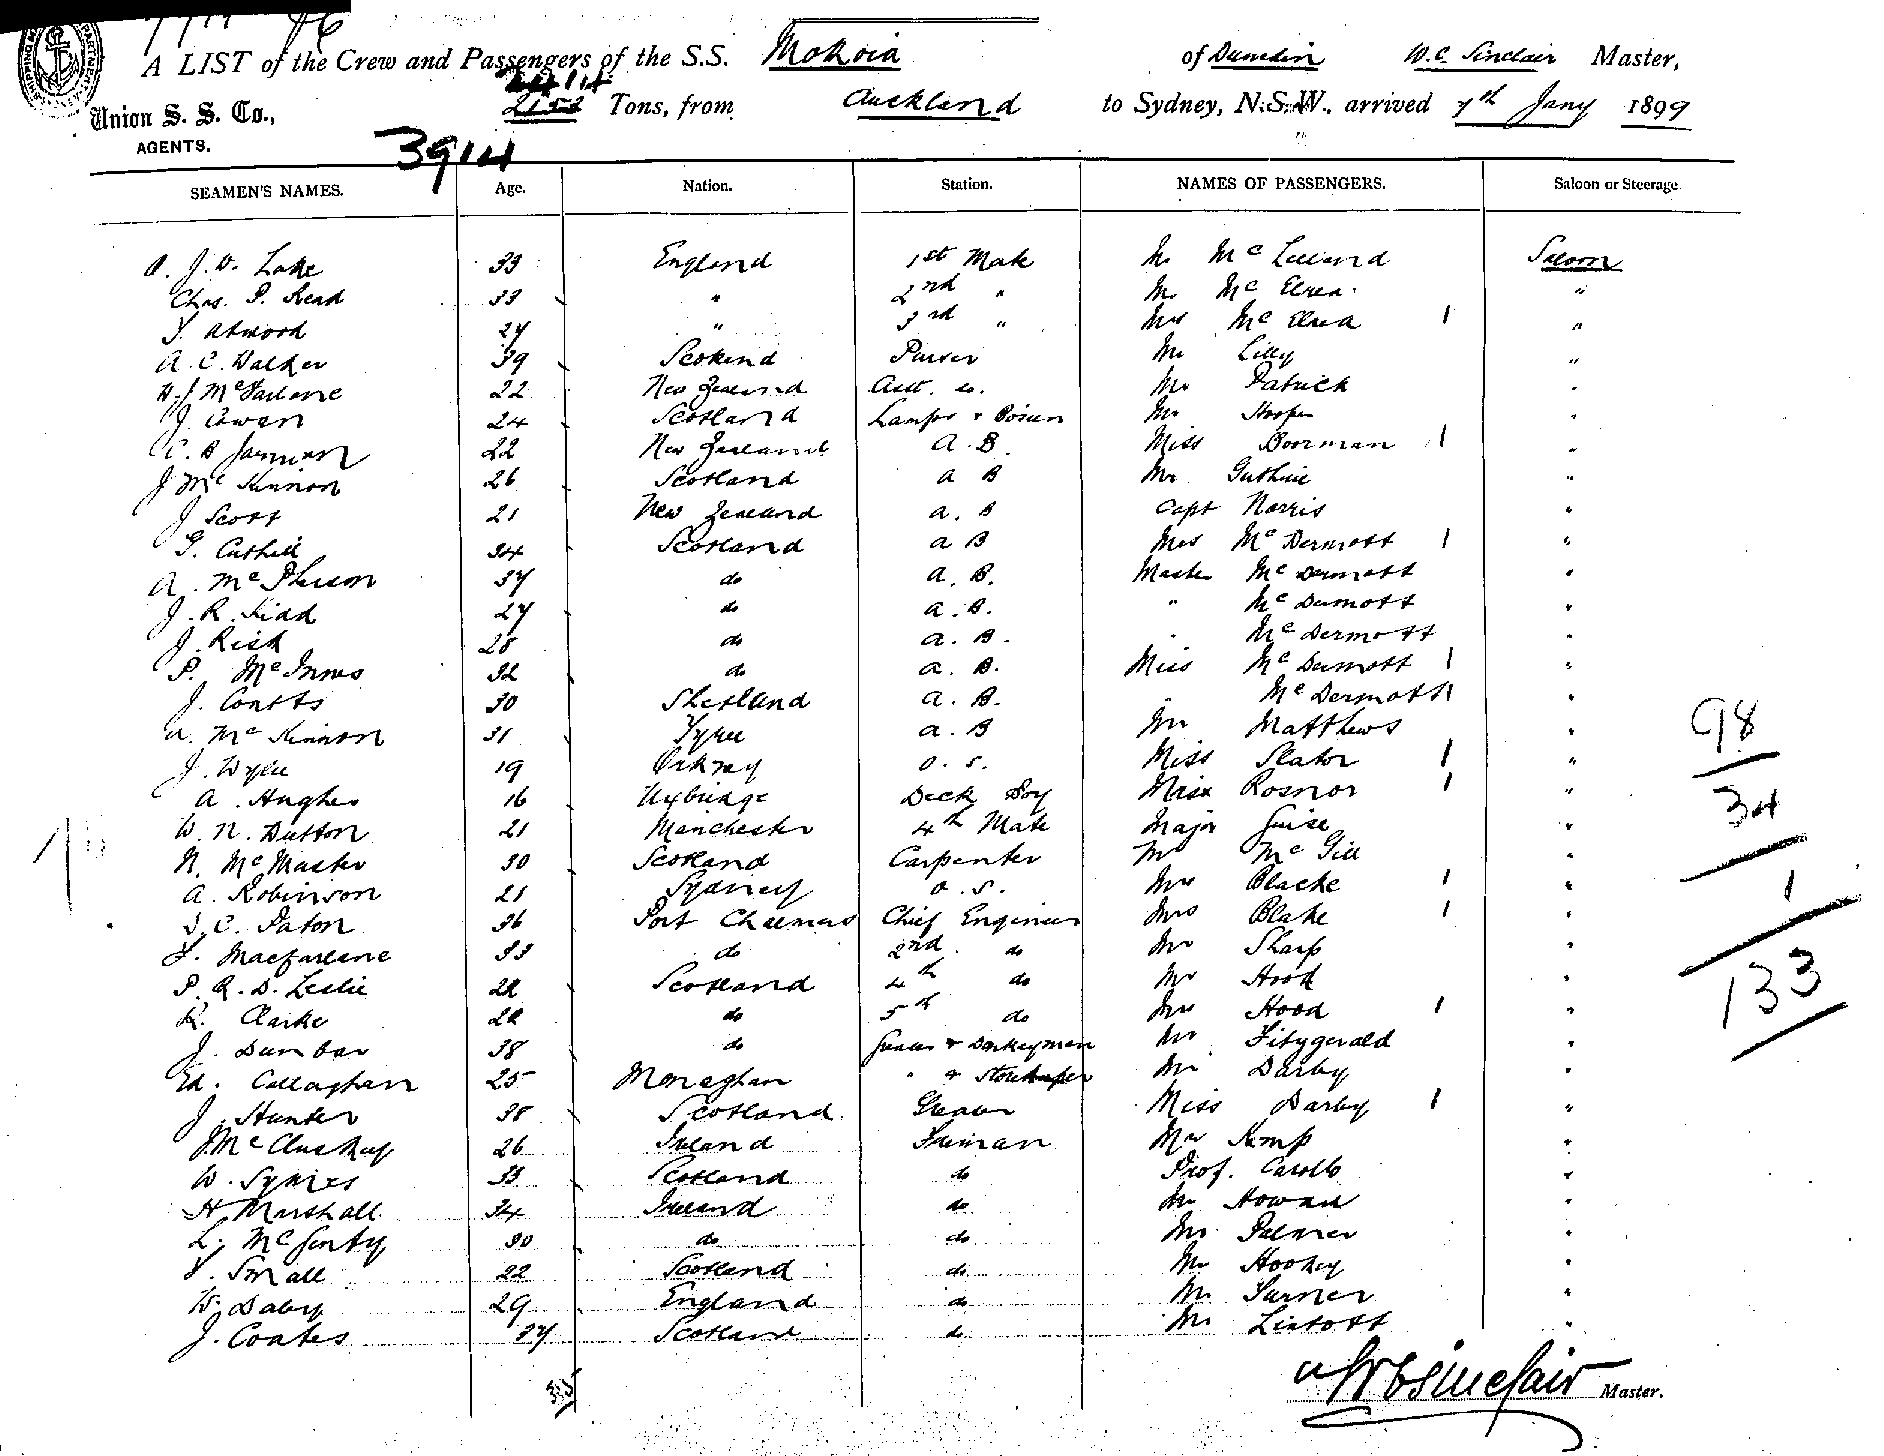 A LIST of the Crew and Passengers of the S.S. Mokoia of Dunedin W.C. Sinclair Master,
Union S. S. Co., 2153 Tons, from Auckland to Sydney, N.S.W., arrived 7th Jany 1899
AGENTS. 3914
SEAMEN'S NAMES. Age. Nation. Station. NAMES OF PASSENGERS. Saloon or Steerage
J. W. Lake 33 England 1st Mate Mr McLelland Saloon
Chas. P. Read 33 " 2nd " Mr McElrea "
Y. Atwood 27 " 3rd " Mrs McElrea 1 "
A. C. Walker 39 Scotland Purser Mr Lilly "
W. J McFarlane 22 New Zealand Asst. do. Mr Patrick "
J. Cowan 24 Scotland Lamps & Bosun Mr Hooper "
C. B Jamieson 22 New Zealand A. B. Miss Boorman 1 "
J McKinnon 26 Scotland A B Mr Guthrie "
J Scott 21 New Zealand A. B Capt Norris "
G. Cuthill 34 Scotland A B Mrs McDermott 1 "
A. McPherson 37 do A. B. Master McDermott "
J. R. Kidd 27 do A. B. " McDermott "
J. Risk 28 do A. B. " McDermott "
P. McInnes 32 do A. B. Miss McDermott 1 "
J. Coutts 30 Shetland A. B. " McDermott 1 "
A. McKinnon 31 Tyree A. B Mr Matthews "
J. Wylie 19 Orkney O. S. Miss Slator 1 "
A. Hughes 16 Uxbridge Deck Boy Miss Rosnor 1 "
W. N. Dutton 21 Manchester 4th Mate Major Guise "
N. McMaster 30 Scotland Carpenter Mr McGill "
A. Robinson 21 Sydney O. S. Mrs Blacke 1 "
C. Paton 36 Port Chalmers Chief Engineer Mrs Blake 1 "
Macfarlane 33 do 2nd do Mr Sharp "
P. R. D. Leslie Scotland 4th do Mr Hood "
R. Clarke do 5th do Mrs Hood 1 "
J. Dunbar 38 do Greaser & Donkeyman Mr Fitzgerald "
Ed. Callaghan 25 Monaghan " & Storekeeper Mr Darby "
J. Hunter 38 Scotland Greaser Miss Darby 1 "
J. McCluskey 26 Ireland Fireman Mr Kemp "
W. Symes 33 Scotland do Prof. Carollo "
H Marshall 34 Ireland do Mr Howard "
L. McGinty 30 do do Mr Palmer "
Small 22 Scotland do Mr Hookey "
W. Daby 29 England do Mr Turner "
J. Coates 37 Scotland do Mr Lintott "
98
34
1
133
35
W C Sinclair Master.